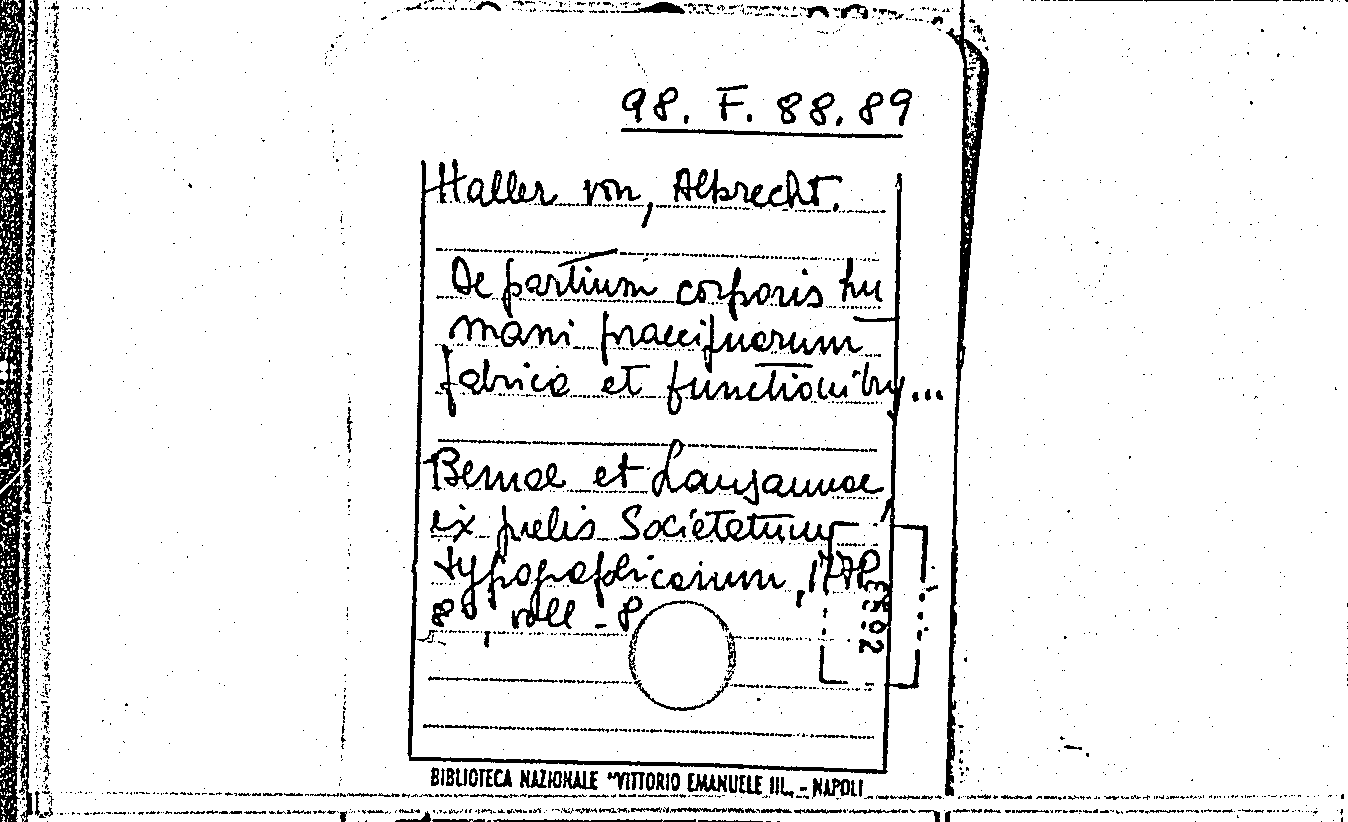 98. F. 88.89
Haller von, Albrecht.
De partium corporis hu
mani praecipuorum
fabrica et functionibus...
Bernae et Lausannae,
ex prelis Societatum
typographicarum, 1778
8º, voll - 8
BIBLIOTECA NAZIONALE "VITTORIO EMANUELE III„ - NAPOLI